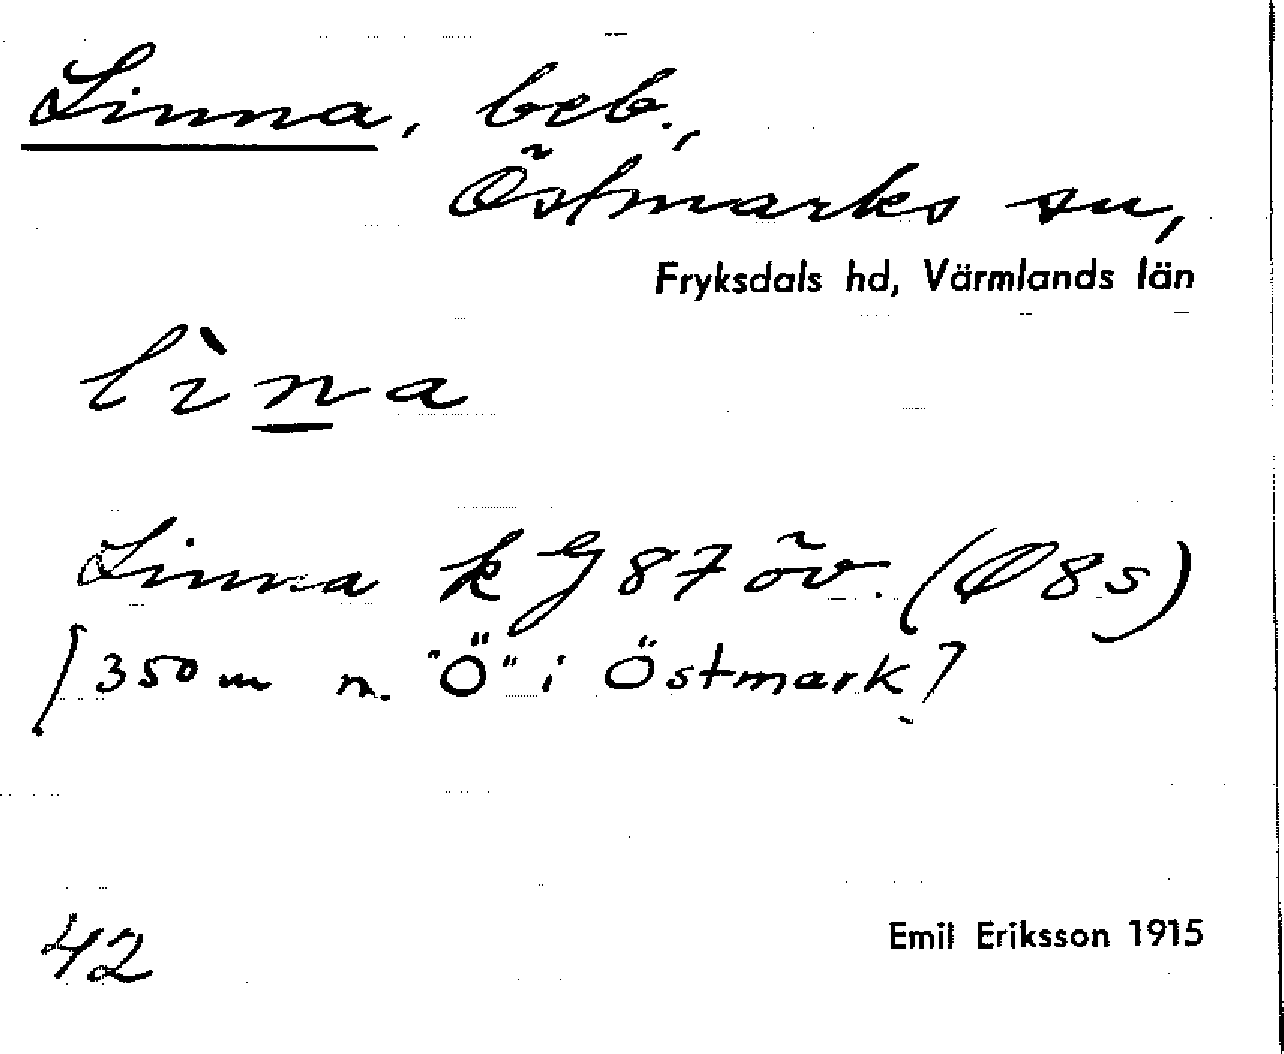 Linna, beb.,
Östmarks sn,
Fryksdals hd, Värmlands län
lìna
Linna k G 87 öv. (Ø 8s)
[350 m n. "Ö" i Östmark]
42
Emil Eriksson 1915